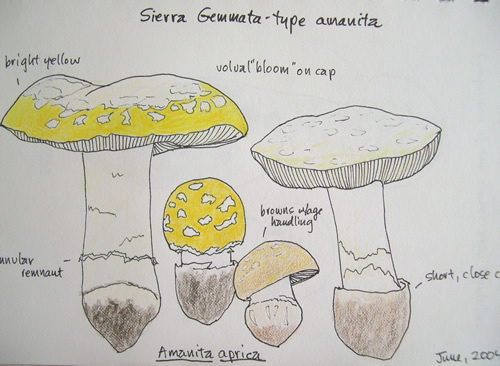 Sierra Gemmata-type amanita
bright yellow
volval "bloom" on cap
browns w/age
handling
nnular
remnant
short, close c
Amanita aprica
June, 2004